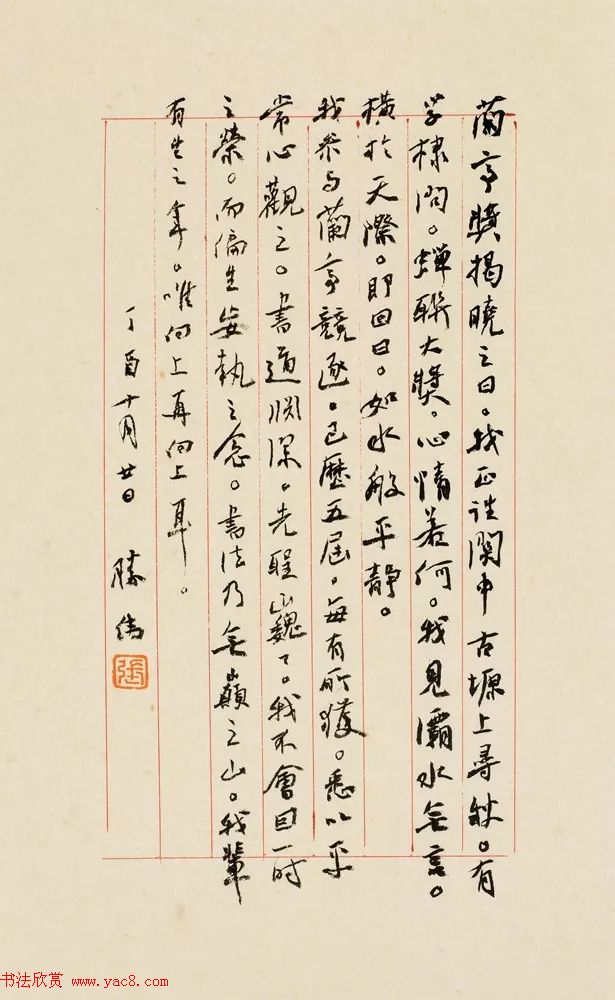 蘭亭獎揭曉之日。我正往關中古塬上尋秋。有
學棣問。蟬聯大獎。心情若何。我見灞水無言。
橫於天際。即回曰。如水般平靜。
我參与蘭亭競逐。已歷五屆。每有所獲。悉以平
常心觀之。書道淵深。先聖巍巍。我不會因一時
之榮。而偏生妄執之念。書法乃無巔之山。我輩
有生之年。唯向上再向上耳。
丁酉十月廿日 勝偉
張
书法欣赏 www.yac8.com